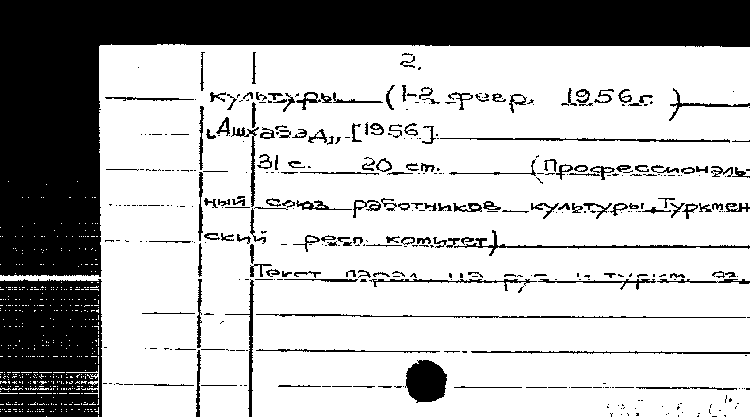 2.
культуры. (1-2 февр. 1956г.)
„Ашхабад„, [1956].
31 с. 20 см. (Профессиональ-
ный союз работников культуры. Туркмен
ский респ. комитет).
Текст парал. на рус. и туркм. яз.